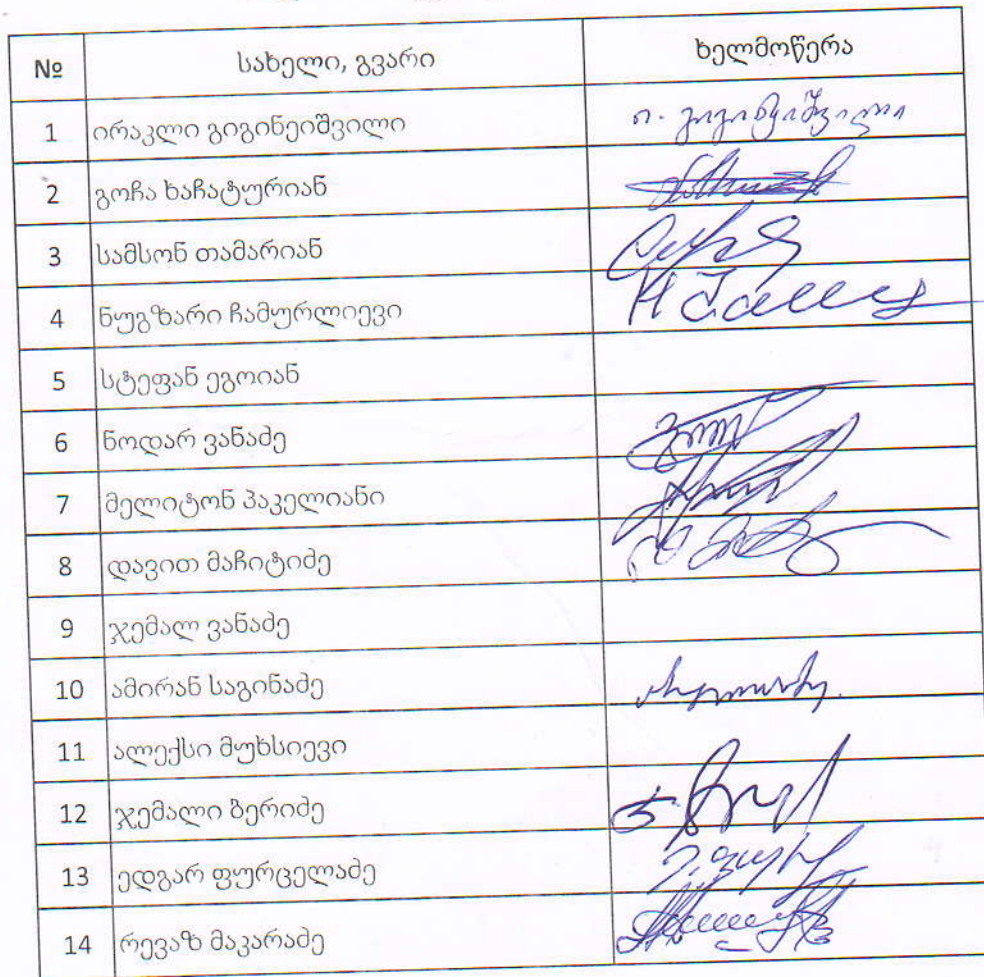 № სახელი, გვარი ხელმოწერა
1 ირაკლი გიგინეიშვილი ი. გიგინეიშვილი
2 გოჩა ხაჩატურიან
3 სამსონ თამარიან
4 ნუგზარი ჩამურლიევი
5 სტეფან ეგოიან
6 ნოდარ ვანაძე
7 მელიტონ პაკელიანი
8 დავით მაჩიტიძე
9 ჯემალ ვანაძე
10 ამირან საგინაძე
11 ალექსი მუხსიევი
12 ჯემალი ბერიძე
13 ედგარ ფურცელაძე
14 რევაზ მაკარაძე